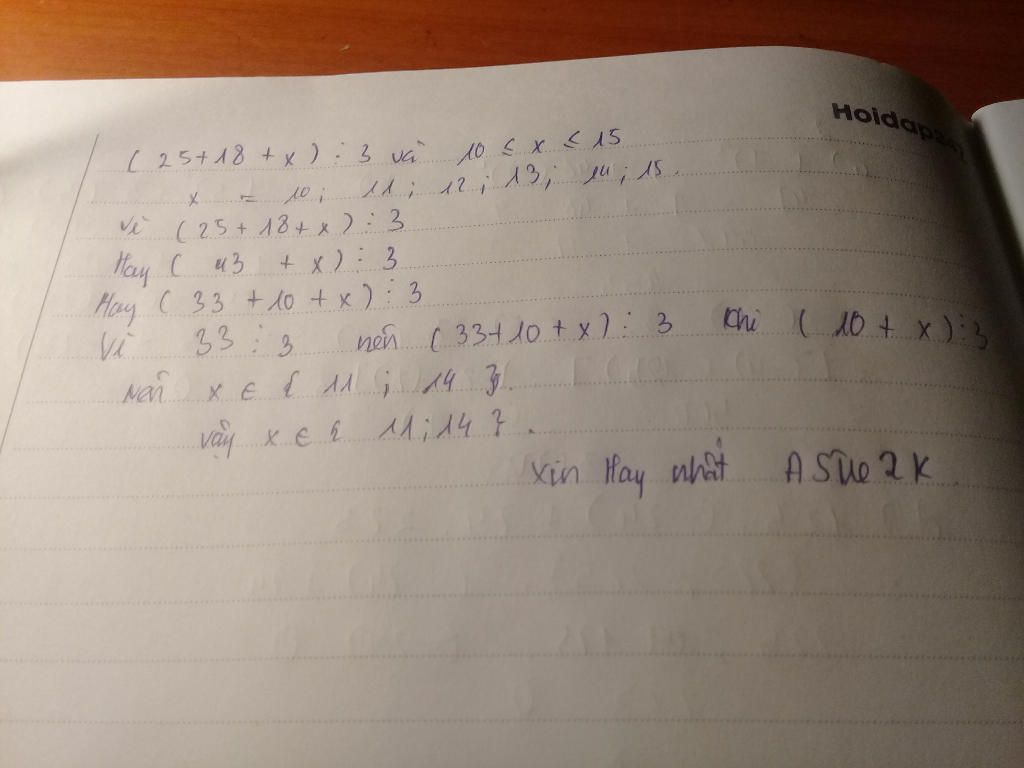 Hoidap247
(25+18+x) ⋮ 3 và 10 ≤ x ≤ 15
x = 10; 11; 12; 13; 14; 15.
Vì (25+18+x) ⋮ 3
Hay ( 43 + x) ⋮ 3
Hay ( 33 +10 + x) ⋮ 3
Vì 33 ⋮ 3 nên (33+10+x) ⋮ 3 Khi ( 10 + x) ⋮ 3
nên x ∈ { 11 ; 14 }.
vậy x ∈ { 11; 14 } .
xin Hay nhất